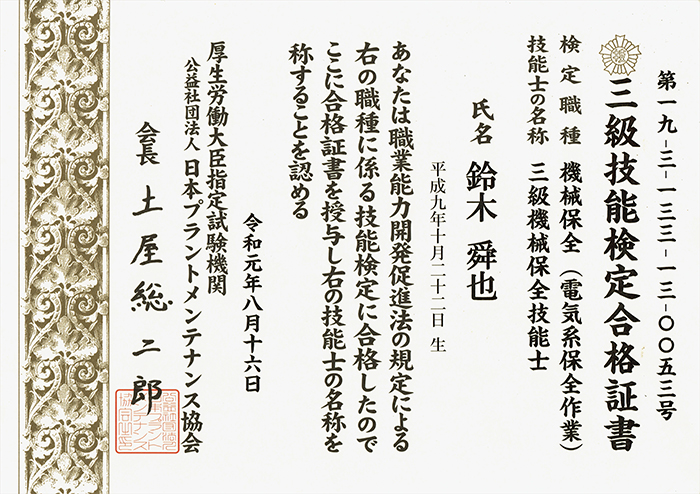 第一九-三-一三三-一三-〇〇五三号
三級技能検定合格証書
検定職種 機械保全(電気系保全作業)
技能士の名称 三級機械保全技能士
氏名 鈴木 舜也
平成九年十月二十二日 生
あなたは職業能力開発促進法の規定による
右の職種に係る技能検定に合格したので
ここに合格証書を授与し右の技能士の名称を
称することを認める
令和元年八月十六日
厚生労働大臣指定試験機関
公益社団法人 日本プラントメンテナンス協会
会長 土屋総二郎